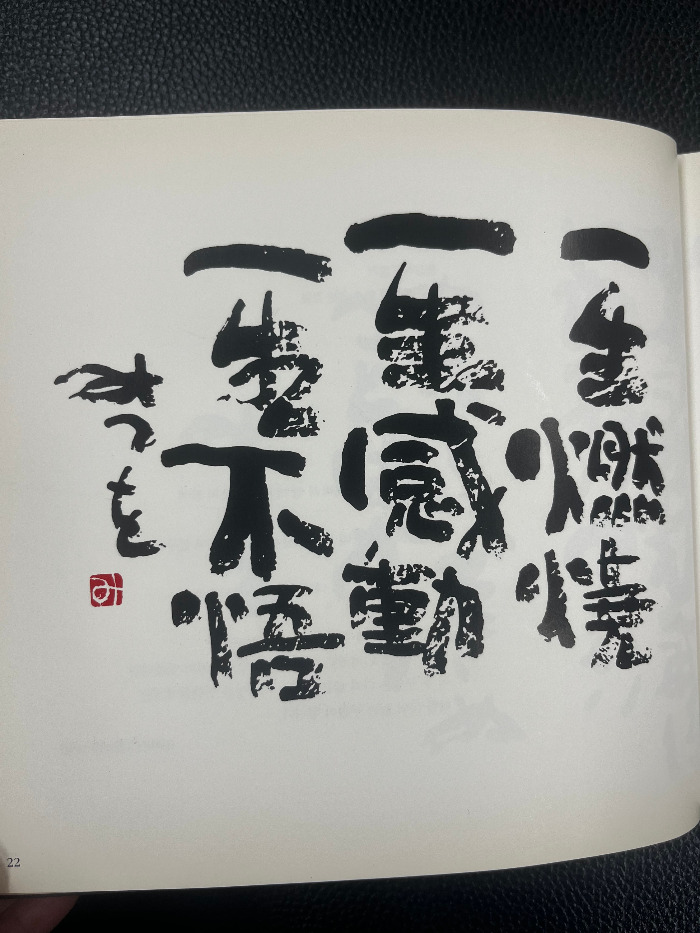 一生燃焼
一生感動
一生不悟
みつを
22